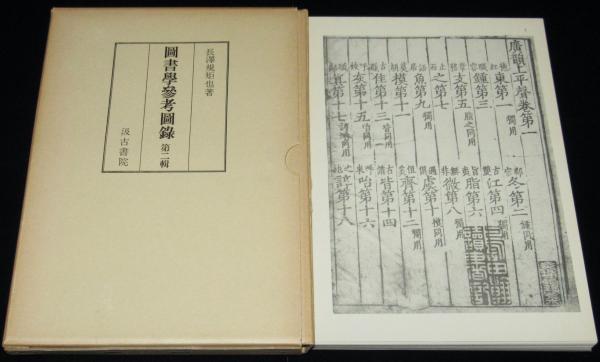 長澤規矩也著
圖書學參考圖錄 第二輯
汲古書院
廣韻上平聲卷第一
東第一 獨用 冬第二 鍾同用
鍾第三 江第四 獨用
支第五 脂之同用 脂第六
之第七 微第八 獨用
魚第九 獨用 虞第十 模同用
模第十一 齊第十二 獨用
佳第十三 皆同用 皆第十四
灰第十五 咍同用 咍第十六
眞第十七 諄臻同用 諄第十八